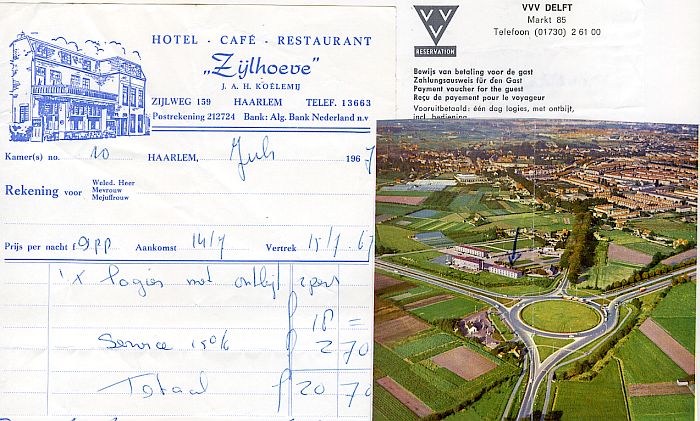 HOTEL - CAFÉ - RESTAURANT
„Zijlhoeve”
J. A. H. KOELEMIJ
ZIJLWEG 159 HAARLEM TELEF. 13663
Postrekening 212724 Bank: Alg. Bank Nederland n.v
Kamer(s) no. 10 HAARLEM, Juli 1967
Rekening voor
Weled. Heer
Mevrouw
Mejuffrouw
Prijs per nacht f 9 pp Aankomst 14/7 Vertrek 15/7 67
1 x logies met ontbijt 2 pers
f 18 =
Service 15% f 2 70
Totaal f 20 70
VVV
RESERVATION
VVV DELFT
Markt 85
Telefoon (01730) 2 61 00
Bewijs van betaling voor de gast
Zahlungsausweis für den Gast
Payment voucher for the guest
Reçu de payement pour le voyageur
Vooruitbetaald: één dag logies, met ontbijt,
incl. bediening